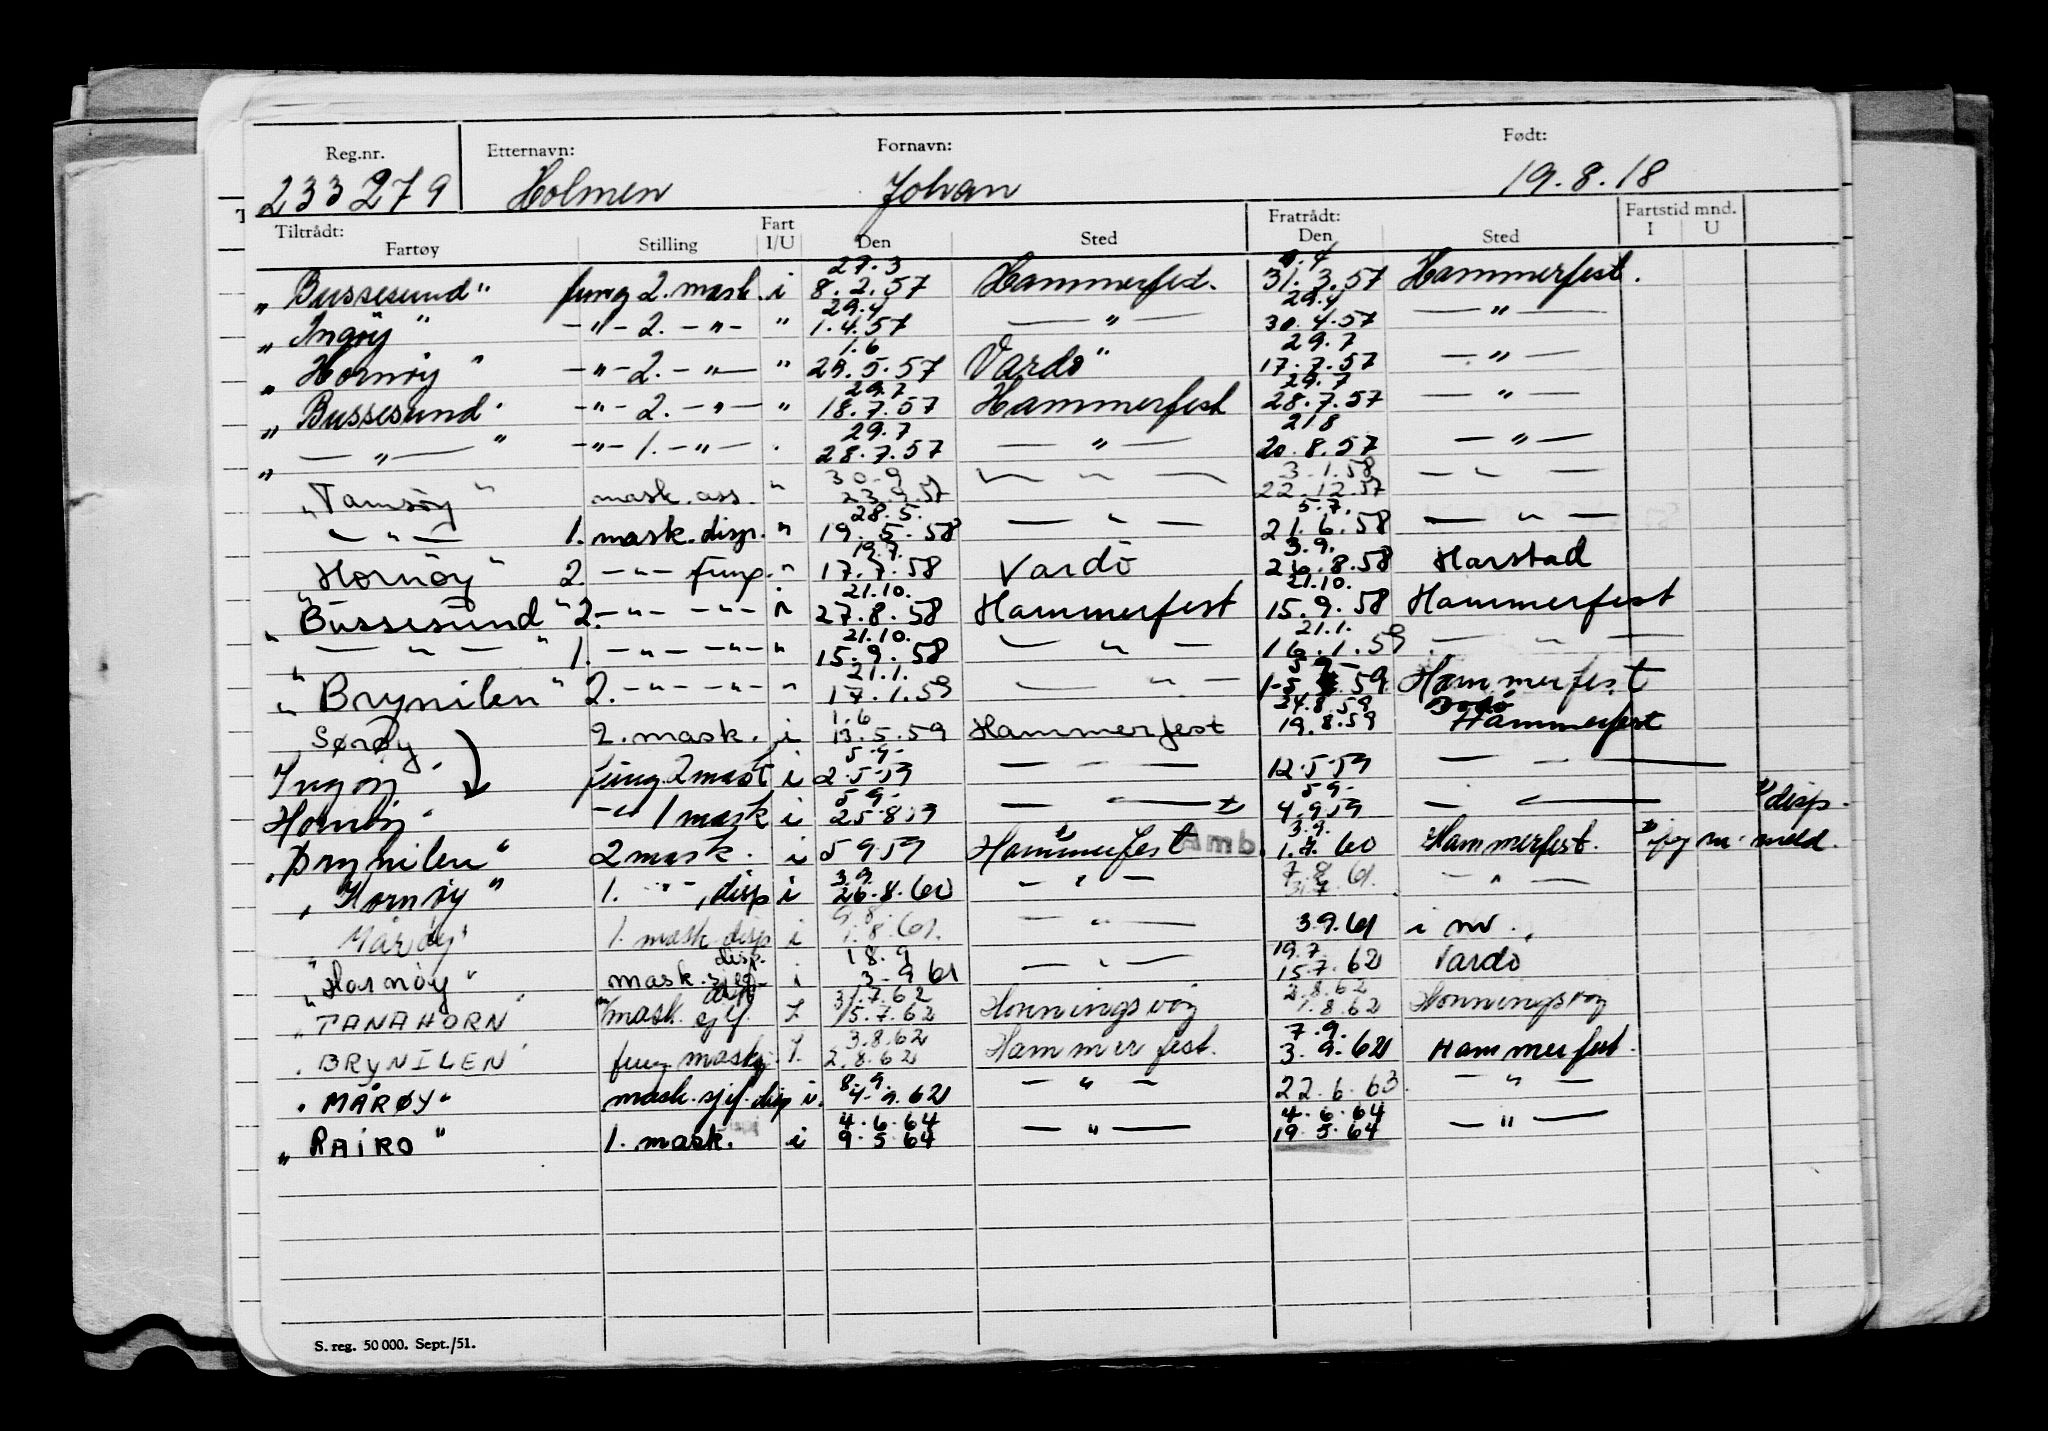 Reg.nr. Etternavn: Fornavn: Født:
233279 Holmen Johan 19.8.18
Tiltrådt: Fart Fratrådt: Fartstid mnd.
Fartøy Stilling I/U Den Sted Den Sted I U
29.3
„Bussesund" fung 2. mask. i 8.2.57 Hammerfest. 31.3.57 Hammerfest.
29.4 29.4
„Ingøy" -"- 2. -"- " 1.4.57 — " — 30.4.57 — " —
1.6 29.7
„Hornøy" -"- 2. -"- " 29.5.57 Vardø" 17.7.57 — " —
29.7 29.7
„Bussesund" -"- 2. -"- " 18.7.57 Hammerfest 28.7.57 — " —
29.7 21.8
„ — " — " -"- 1. -"- . 28.7.57 — " — 20.8.57 — " —
30.9 3.1.58
„Tamsøy" mask.ass. " 23.9.57 — " — 22.12.57 — " —
28.5. 5.7.
— " — 1. mask.disp. " 19.5.58 — " — 21.6.58 — " —
19.7. 3.9.
„Hornøy" 2. -"- fung. " 17.7.58 Vardö 26.8.58 Harstad
21.10. 21.10.
„Bussesund" 2. -"- -"- " 27.8.58 Hammerfest 15.9.58 Hammerfest
21.10. 21.1.
„ — " — " 1. -"- -"- " 15.9.58 — " — 16.1.59 — " —
21.1. 5.9-
„Brynilen" 2. -"- -"- " 17.1.59 — " — 1-5 59. Hammerfest
1.6 24.8.59 Bodø
Sørøy 2. mask. i 13.5.59 Hammerfest 19.8.59 Hammerfest
5-9-
Ingøy " fung. 2 mask i 2-5-59 — — — 12-5-59 — — —
5-9- 59- disp.
Hornøy " -"- 1 mask i 25-8-59 — " — 4.9.59 — " —
3.9.
„Brynilen" 2 mask. i 5 9 59 Hammerfest Amb. 1.7.60 Hammerfest. m. meld.
3.9 7.8
„Hornøy" 1. -"-, disp i 26.8.60 — " — 3.7.61. — " —
„Mårøy" 1. mask disp i 1.8.61. — " — 3.9.61 i nv.
disp. 18.9 19.7
„Hornøy" mask.sjef- i 3-9 61 — " — 15.7.62 Vardø
disp 31.7.62 2.8.62
„TANAHORN" mask.sjef. I 15.7.62 Honningsvåg 1.8.62 Honningsvåg
3.8.62 7.9.
„BRYNILEN" fung maskj. I. 2.8.62 Hammerfest. 3.9.62 Hammerfest.
8.9.
„MÅRØY" mask.sjef. disp i. 4.9.62 — " — 22.6.63. — " —
4.6.64 4.6.64
„RAIRO" 1. mask. i 9.5.64 — " — 19.5.64 — " —
S. reg. 50 000. Sept./51.